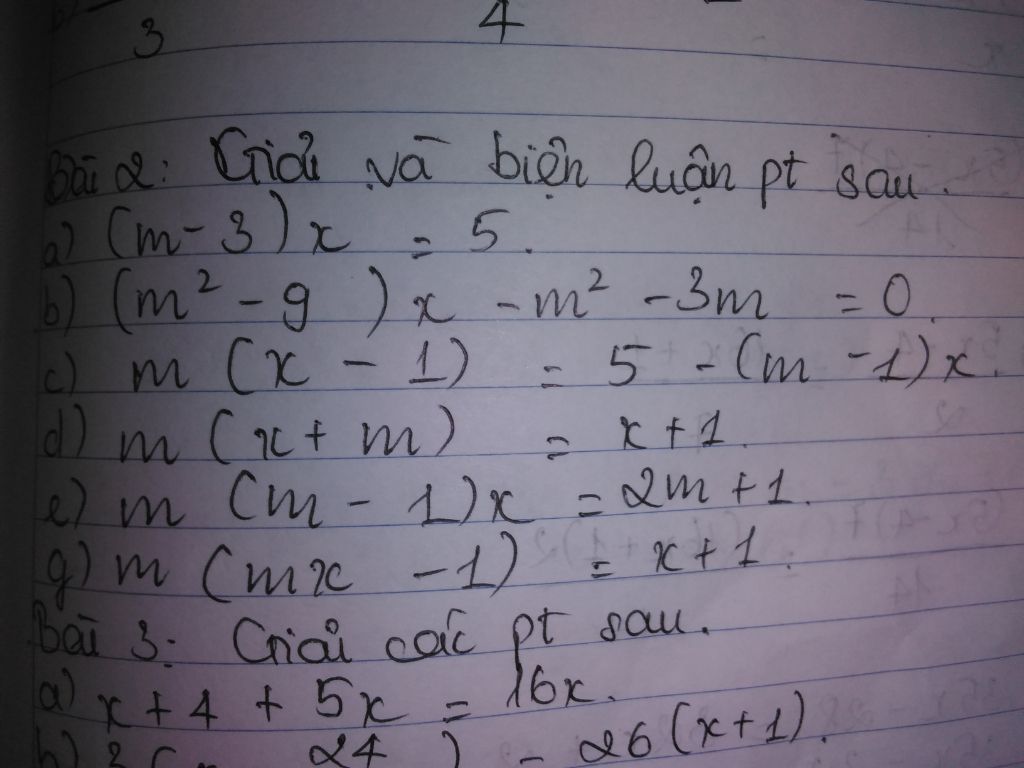 3 4
Bài 2: Giải và biện luận pt sau.
a) (m - 3)x = 5.
b) (m² - 9)x - m² - 3m = 0.
c) m (x - 1) = 5 - (m - 1)x.
d) m (x + m) = x + 1.
e) m (m - 1)x = 2m + 1.
g) m (mx - 1) = x + 1.
Bài 3: Giải các pt sau.
a) x + 4 + 5x = 16x.
24 ) = 26 (x+1).